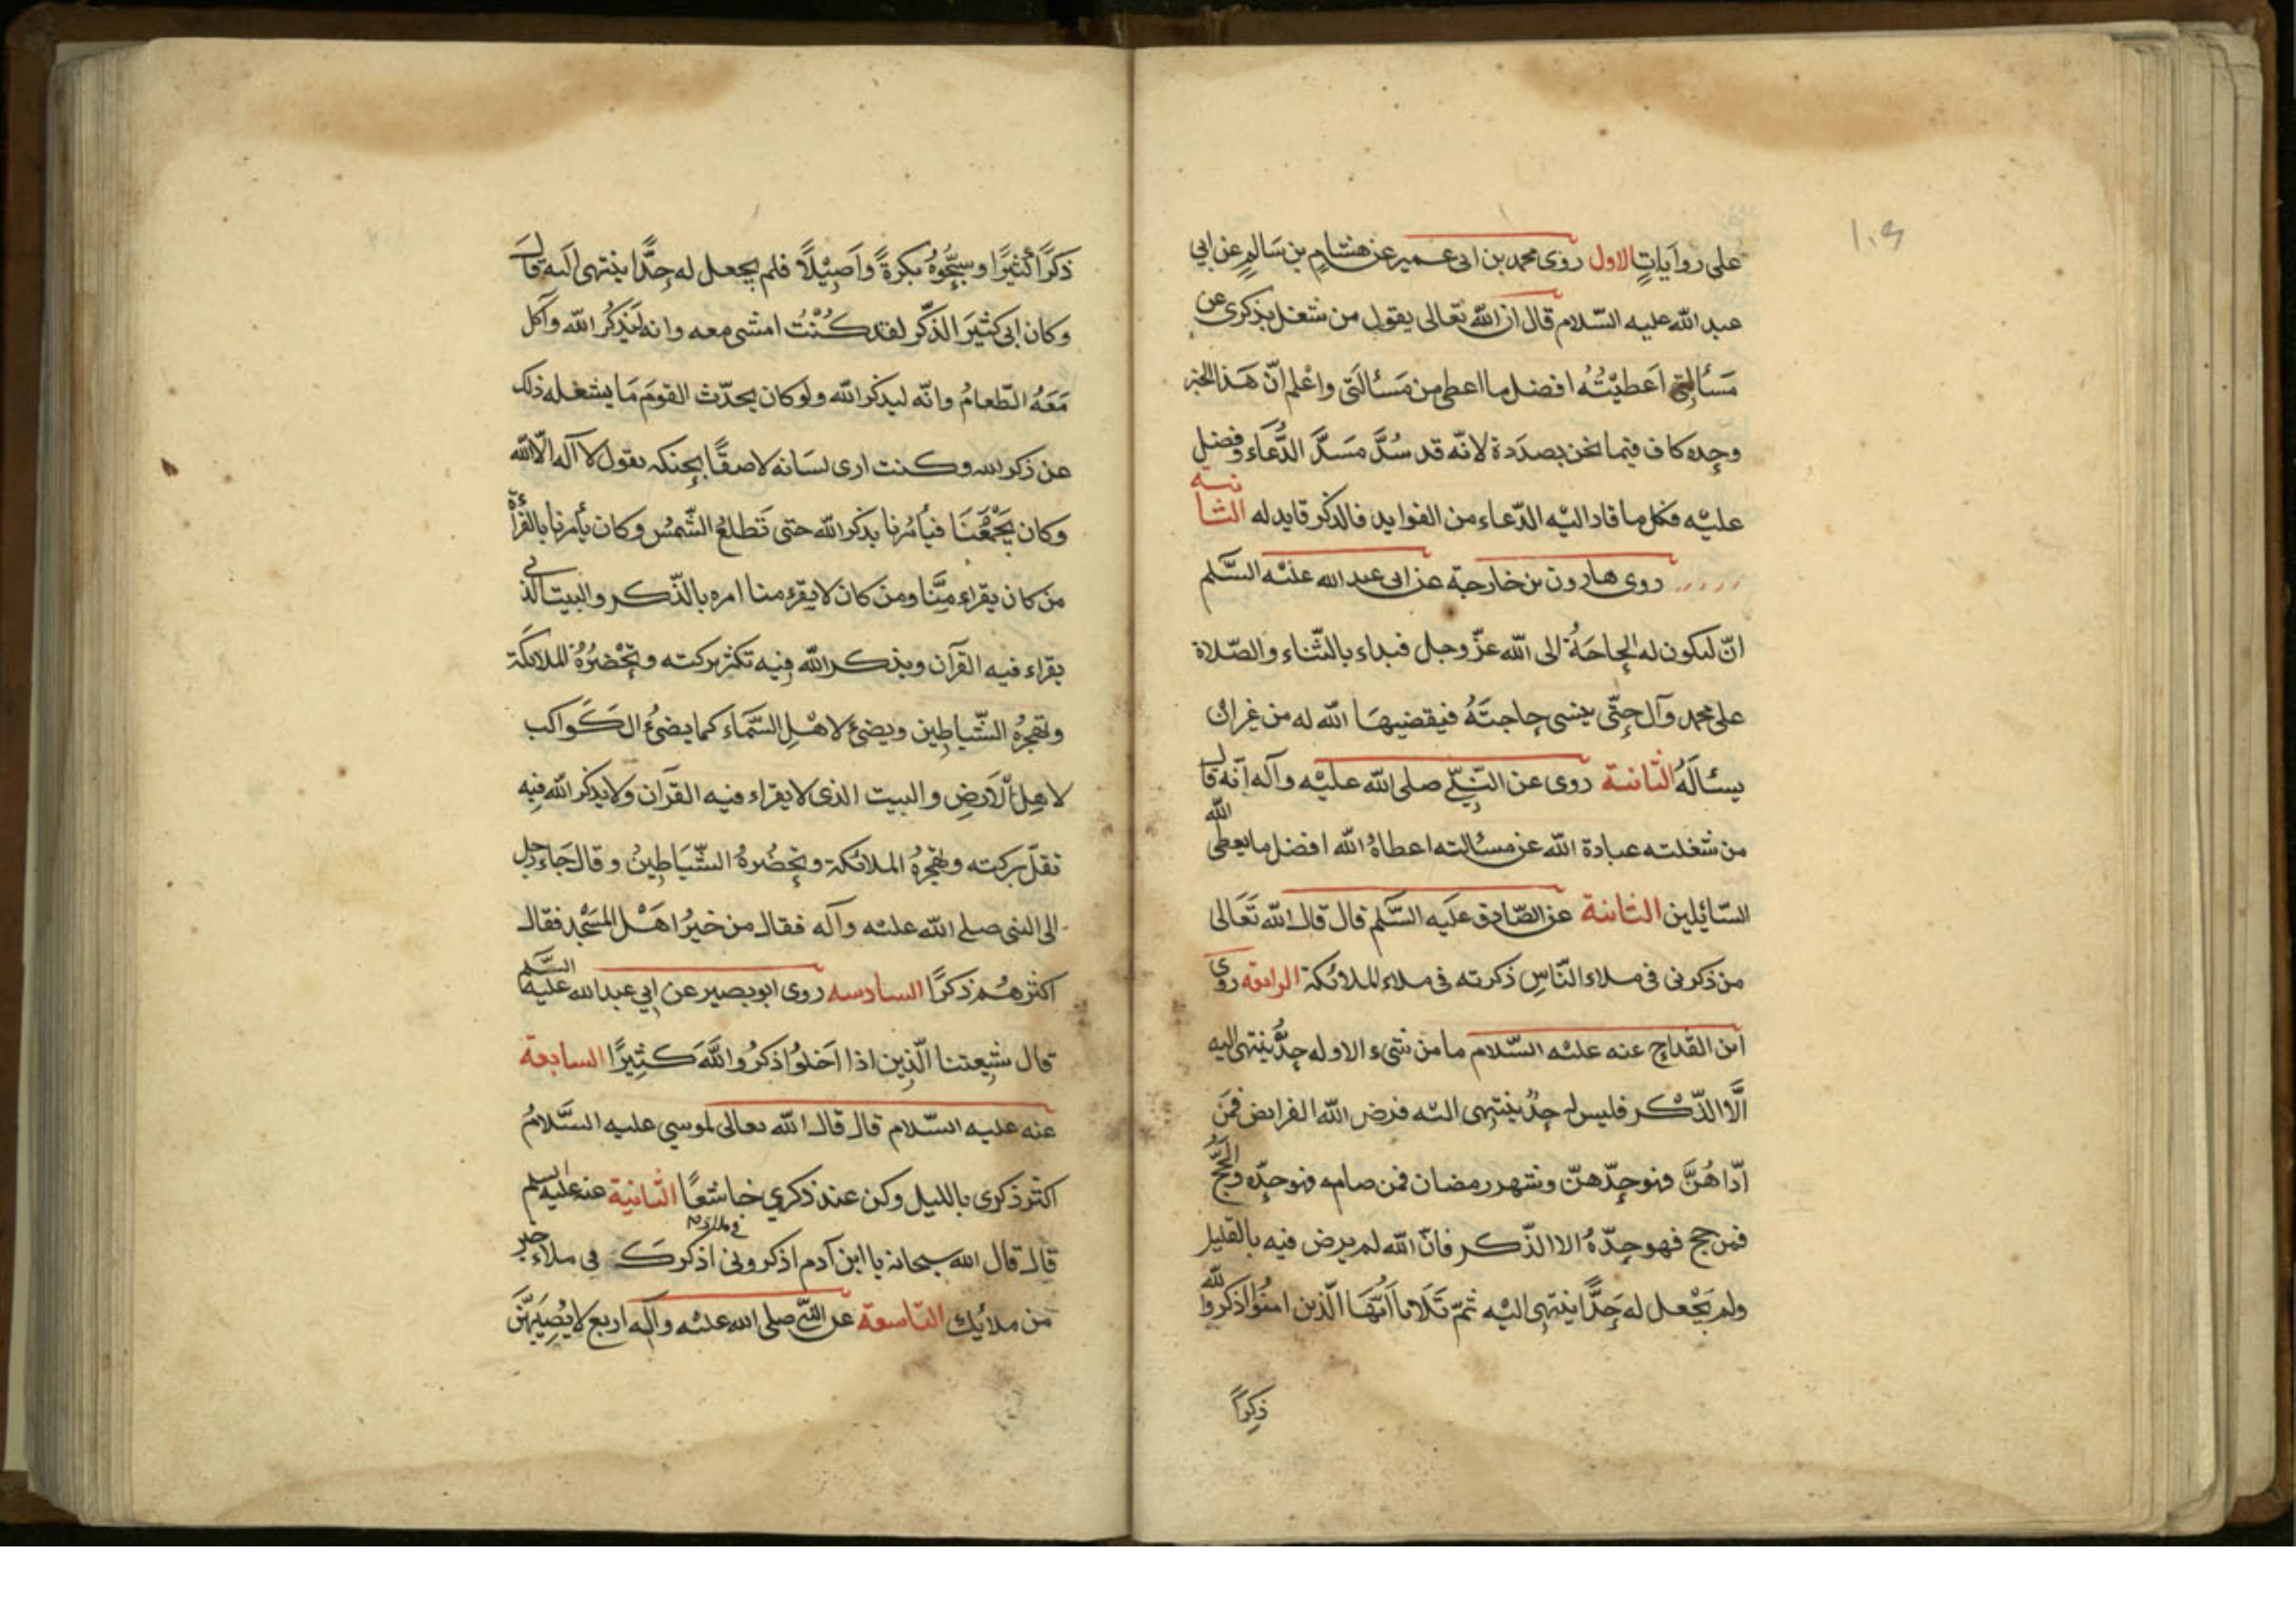 ١٠٩
على روَاياتٍ الاول روى محمد بن ابى عمير عن هشام بن سَالم عن ابي
عبد الله عليه السّلام قال ان الله تعالى يقول من شغل بذكرى عن
مَسألتى اَعطيْتُهُ افضل ما اعطى من مَسألَتى واعْلم انّ هَذا الخبر
وحده كاف فيما نحن بصدَدة لانّه قد سُدَّ مَسَدَّ الدُّعَاء وفضل
عليْه فكل ما قاد اليْه الدّعاء من الفوايد فالذكر قايد له الثانية
روى هارون بن خارجة عن ابى عبد الله عليْه السَّلم
انّ ليكون له الحاجَةُ الى الله عزّ وجل فبداء بالثّناء والصّلاة
على محمد وآل حتّى ينسى حاجتَهُ فيقضيهَا الله له من غير ان
يسئالَهُ الثانية روى عن النّبىّ صلى الله عليْه وآله انّه قال
من شغلته عبادة الله عن مسئالته اعطاهُ الله افضل ما يعطى الله
السّائِلين الثانية عن الصّادق عليَه السَّلم قال قال الله تَعَالى
من ذكرنى فى ملاء النّاسِ ذكرته فى ملاء الملائكة الرابعة روى
ابن القداح عنه عليْه السّلام ما من شىء الا وله حدٌّ ينتهى اليه
الَّا الذّكر فليس له حدٌّ ينتهى اليْه فرض الله الفرايض فمَن
ادّاهُنَّ فهو حدّهنّ وشهر رمضان فمن صامه فهو حدّه والحَجّ
فمن حج فهو حدّهُ الا الذّكر فانّ الله لم يرض فيه بالقليل
ولم يَجْعل له حَدًّا ينتهى اليْه ثمّ تَلَا يا اَيّهَا الّذين امنُوا اذكروا لله
ذكِراً
ذكرًا كَثيرًا وسبّحُوهُ بكرةً واَصِيْلًا فلم يجعل له حِدًّا ينتهى اليه قال
وكان ابى كثيرَ الذّكر لقد كُنْتُ امشى معه وانه لَيَذكُر الله وآكل
مَعَهُ الطّعامُ وانّه ليذكر الله ولو كان يحدّث القومَ مَا يشغله ذلك
عن ذكر الله وكنت ارى لسَانه لاصقًا بحنكه يقول لا آله الّا الله
وكان يَجْمعُنَا فيأمُرنا بذكر الله حتى تَطلعُ الشّمسُ وكان يأمرنا بالقرأةِ
من كان يقراء مِنَّا ومن كان لا يقرء منا امره بالذّكر والبيت الذى
يقراء فيه القرآن ويذكر الله فِيه تكثر بركته وتَحْضرُهُ الملائكة
وتهجرُهُ الشّياطِين ويضئ لاهْلِ السَّمَاء كما يضئُ الكَوَاكب
لاهِل الْاَرضِ والبيت الذى لا يقراء فيه القرآن ولا يذكر الله فِيه
تقلّ بركته وتهجرُهُ الملائكة وتحضُرهُ الشّيَاطِينُ وقال جَاءَ رجل
الى النبى صلى الله عليْه وآله فقال من خيرُ اهَْل المَسْجد فقال
اكثرهُم ذكرًا السادسه روى ابو بصير عن ابِي عبد الله عليه السَّلم
قال شيِعتنا الّذِين اذا اَخلوُا ذكرُوا اللَّهَ كَثِيرًا السابعة
عنه عليه السّلام قال قال الله تعالى لموسى عليه السَّلامُ
اكثر ذكرى بالليل وكن عند ذكري خاشعًا الثانية عنه عليه السلم
قال قال الله سبحانه يا ابن آدم اذكرونى اذكركَ فى ملاء خير
من ملائِك التاسعة عن النّبىّ صلى الله عليْه وآله اربع لا يُصِيَبهنّ